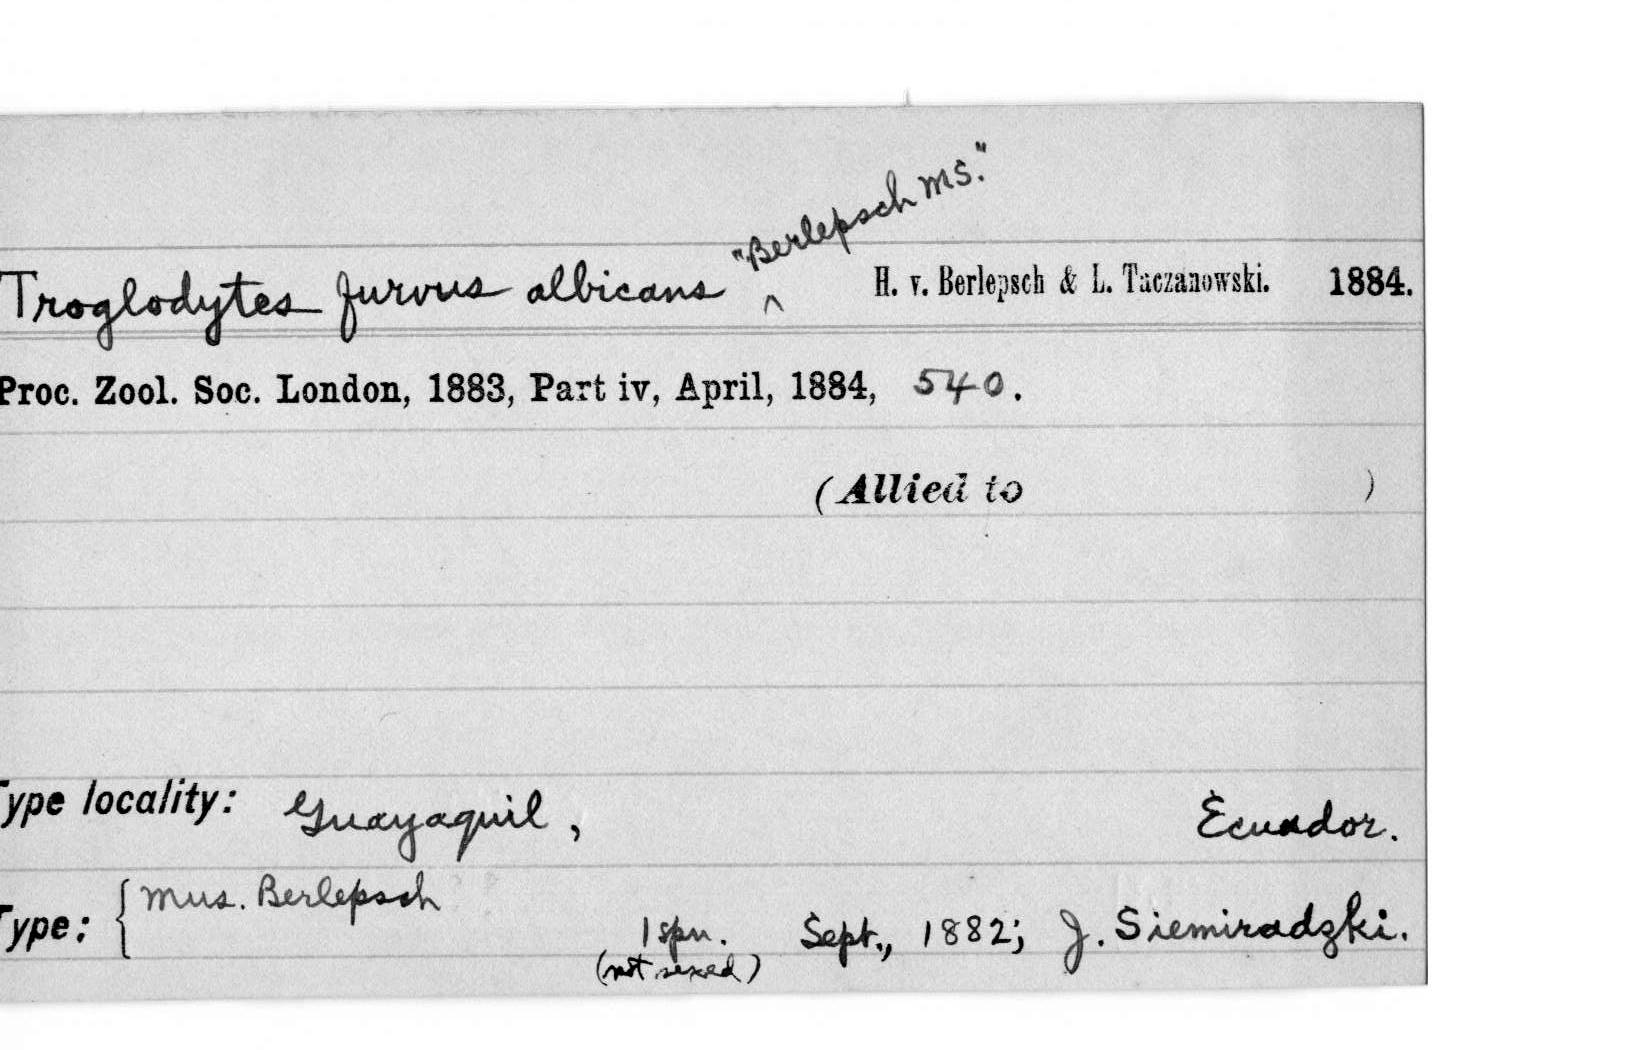 "Berlepsch MS."
Troglodytes furvus albicans ^ H. v. Berlepsch & L. Taczanowski. 1884.
Proc. Zool. Soc. London, 1883, Part iv, April, 1884, 540.
(Allied to )
Type locality: Guayaquil, Ecuador.
Type: { Mus. Berlepsch
1 spn. Sept., 1882; J. Siemiradzki.
(not sexed)